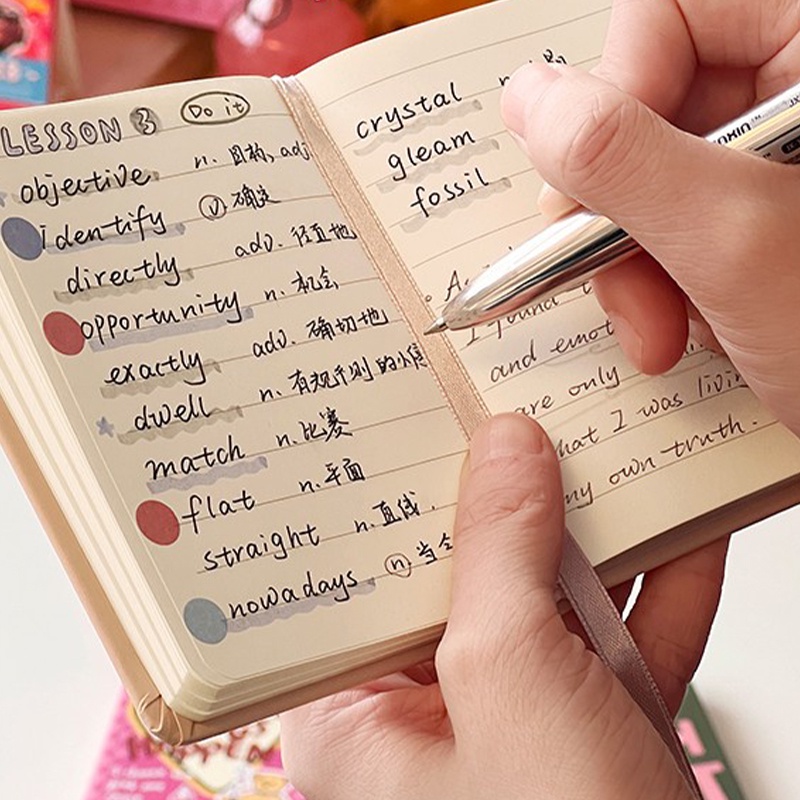 LESSON 3 Do it
objective n. 目标, adj
identify v 确定
directly adv. 径直地
opportunity n. 机会
exactly adv. 确切地
dwell n.
match n. 比赛
flat n. 平面
straight n. 直线.
nowadays n 当今
crystal
gleam
fossil
I found
and emot
are only
that I was livin
my own truth.